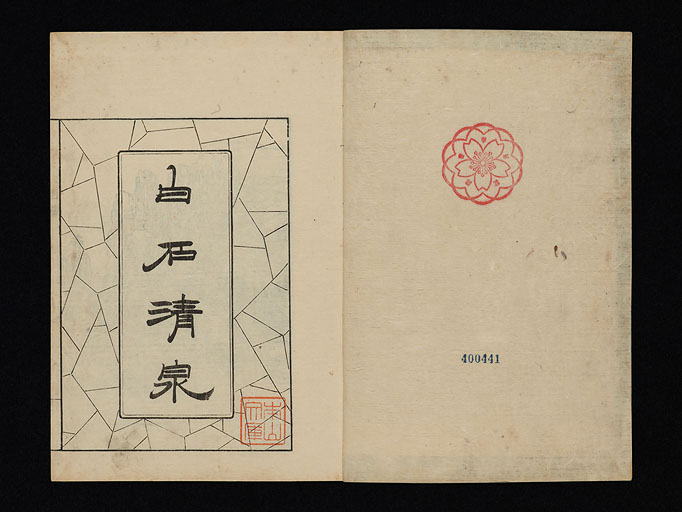 400441
白石清泉